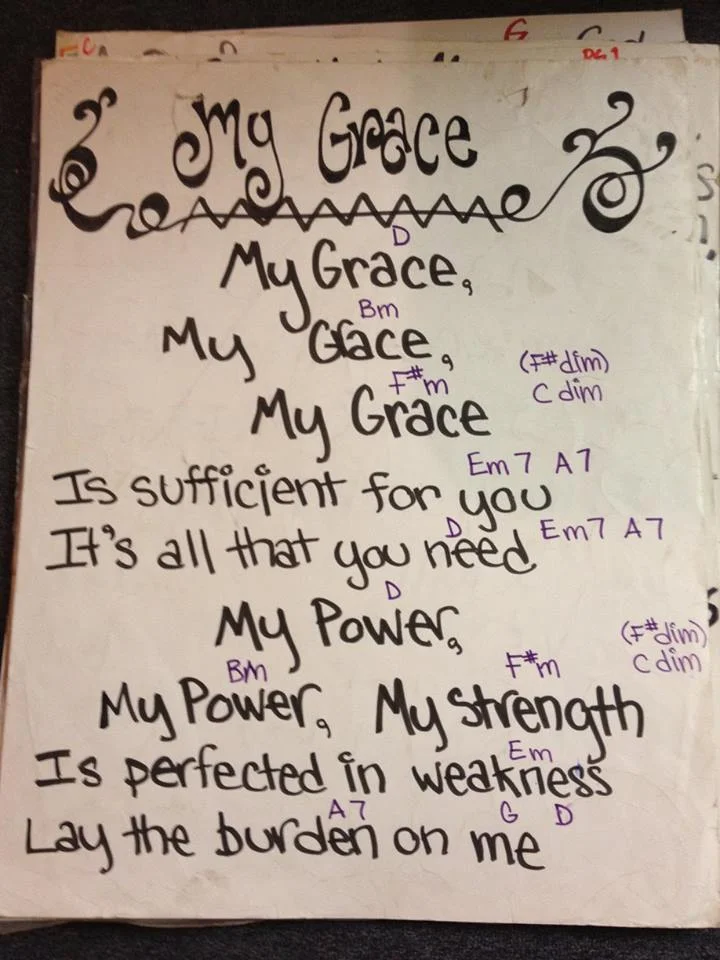 My Grace
D
My Grace,
Bm
My Grace,
F#m (F#dim)
C dim
My Grace
Em7 A7
Is sufficient for you
D Em7 A7
It's all that you need
D
My Power,
(F#dim)
BM F#m C dim
My Power, My Strength
Em
Is perfected in weakness
A7 G D
Lay the burden on me